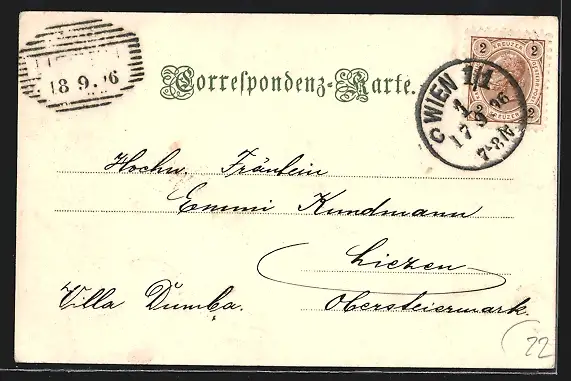 18 9. 96
Correspondenz-Karte.
2 KREUZER 2
2 KREUZER 2
WIEN 1/1
1
17 9 96
7-8 N
C
Hochw. Fräulein
Emmi Kundmann
Liezen
Villa Dumba.
Obersteiermark.
22